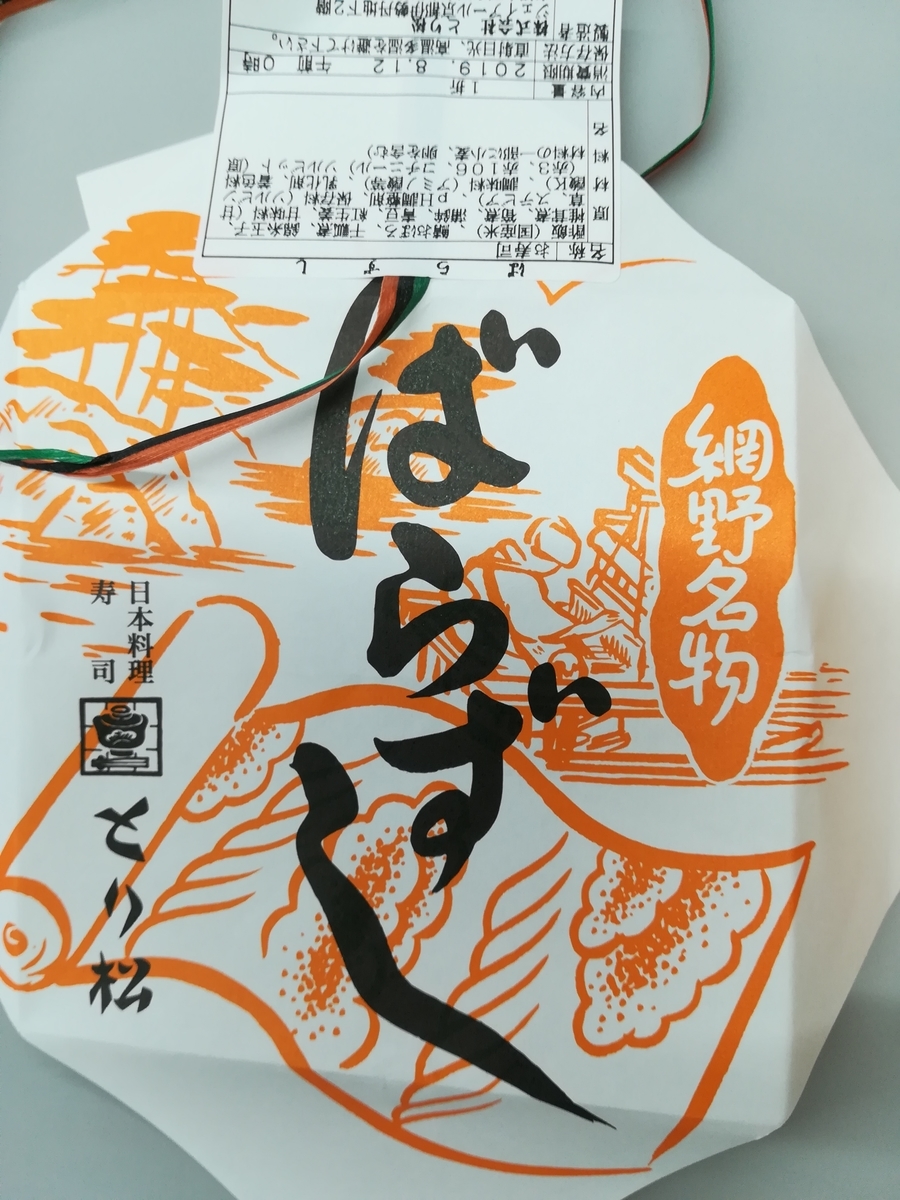 ばらずし
網野名物
日本料理
寿司
とり松
ばらずし
名称 お寿司
原材料名 酢飯(国産米)、鯖おぼろ、干瓢煮、錦糸玉子、
椎茸煮、筍煮、蒲鉾、青豆、紅生姜、甘味料(甘
草、ステビア)、pH調整剤、保存料(ソルビン
酸K)、調味料(アミノ酸等)、乳化剤、着色料
(赤3、赤106、コチニール)、ソルビット(原
材料の一部に小麦、卵を含む)
内容量 1折
消費期限 2019. 8.12 午前 0時
保存方法 直射日光、高温多湿を避けて下さい。
製造者 株式会社 とり松
ジェイアール京都伊勢丹地下2階